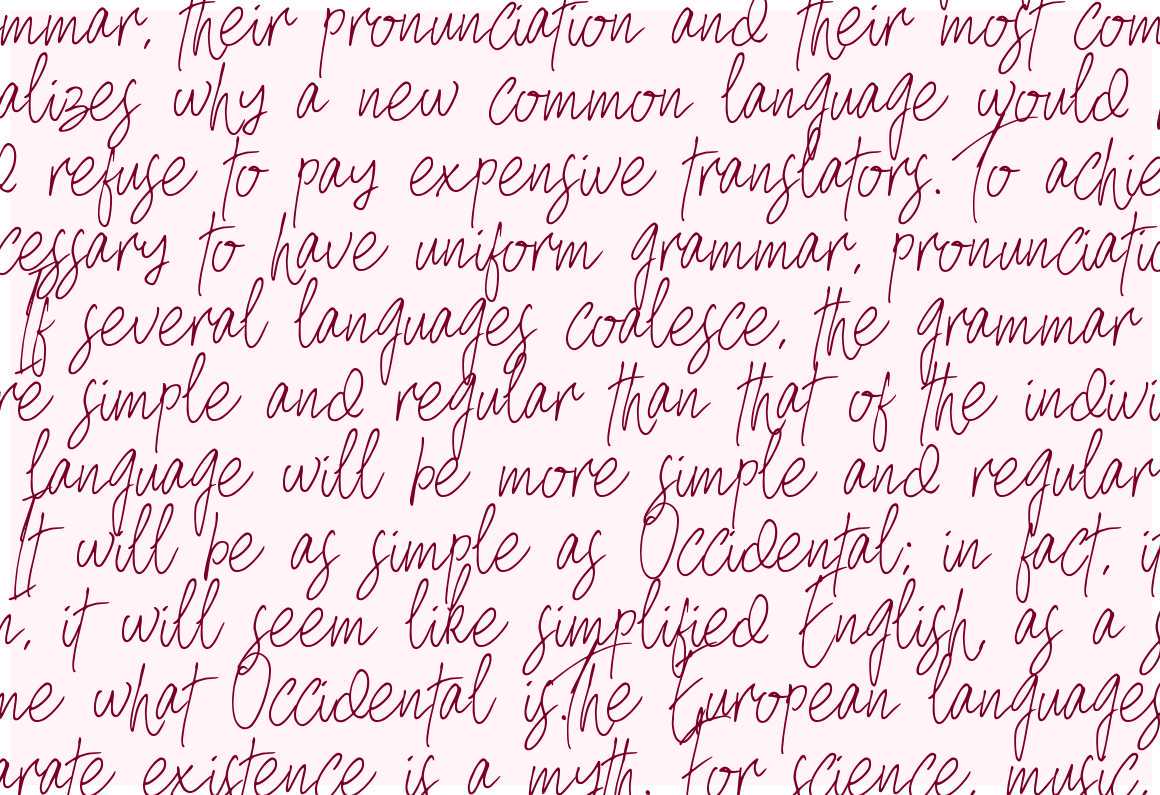 mmar, their pronunciation and their most com
alizes why a new common language would
refuse to pay expensive translators. To achie
cessary to have uniform grammar, pronunciatio
If several languages coalesce, the grammar
re simple and regular than that of the indivi
language will be more simple and regular
It will be as simple as Occidental; in fact, it
n, it will seem like simplified English, as a s
me what Occidental is.The European languages
arate existence is a myth. For science, music,